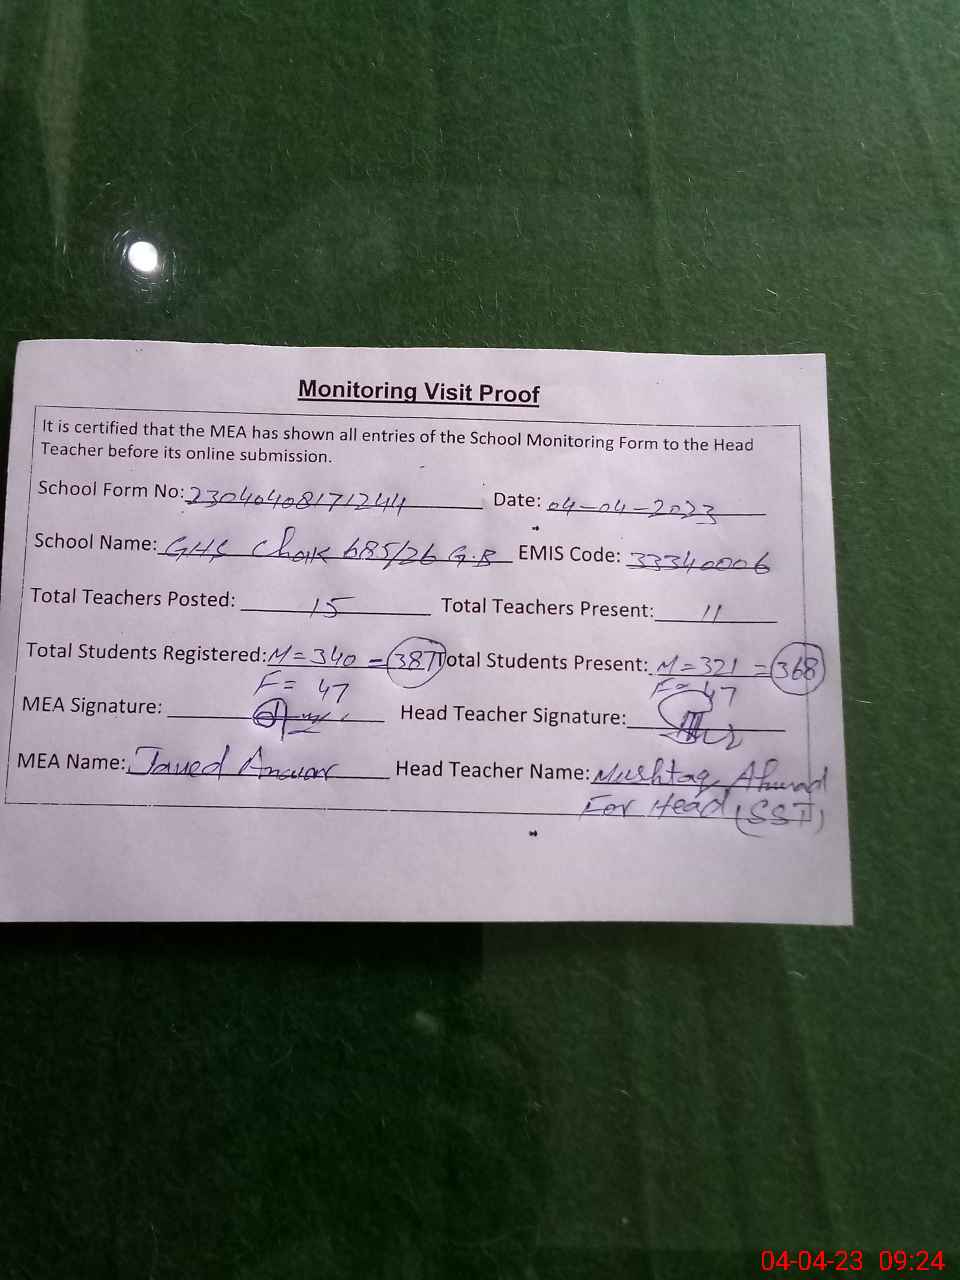 Monitoring Visit Proof
It is certified that the MEA has shown all entries of the School Monitoring Form to the Head
Teacher before its online submission.
School Form No: 23040408171244 Date: 04-04-2023
School Name: GHS Chak 685/26 G.B EMIS Code: 33340006
Total Teachers Posted: 15 Total Teachers Present: 11
Total Students Registered: M=340 = 387 Total Students Present: M=321 = 368
F= 47 F= 47
MEA Signature: Head Teacher Signature:
MEA Name: Javed Anwar Head Teacher Name: Mushtaq Ahmad
For Head (SST)
04-04-23 09:24